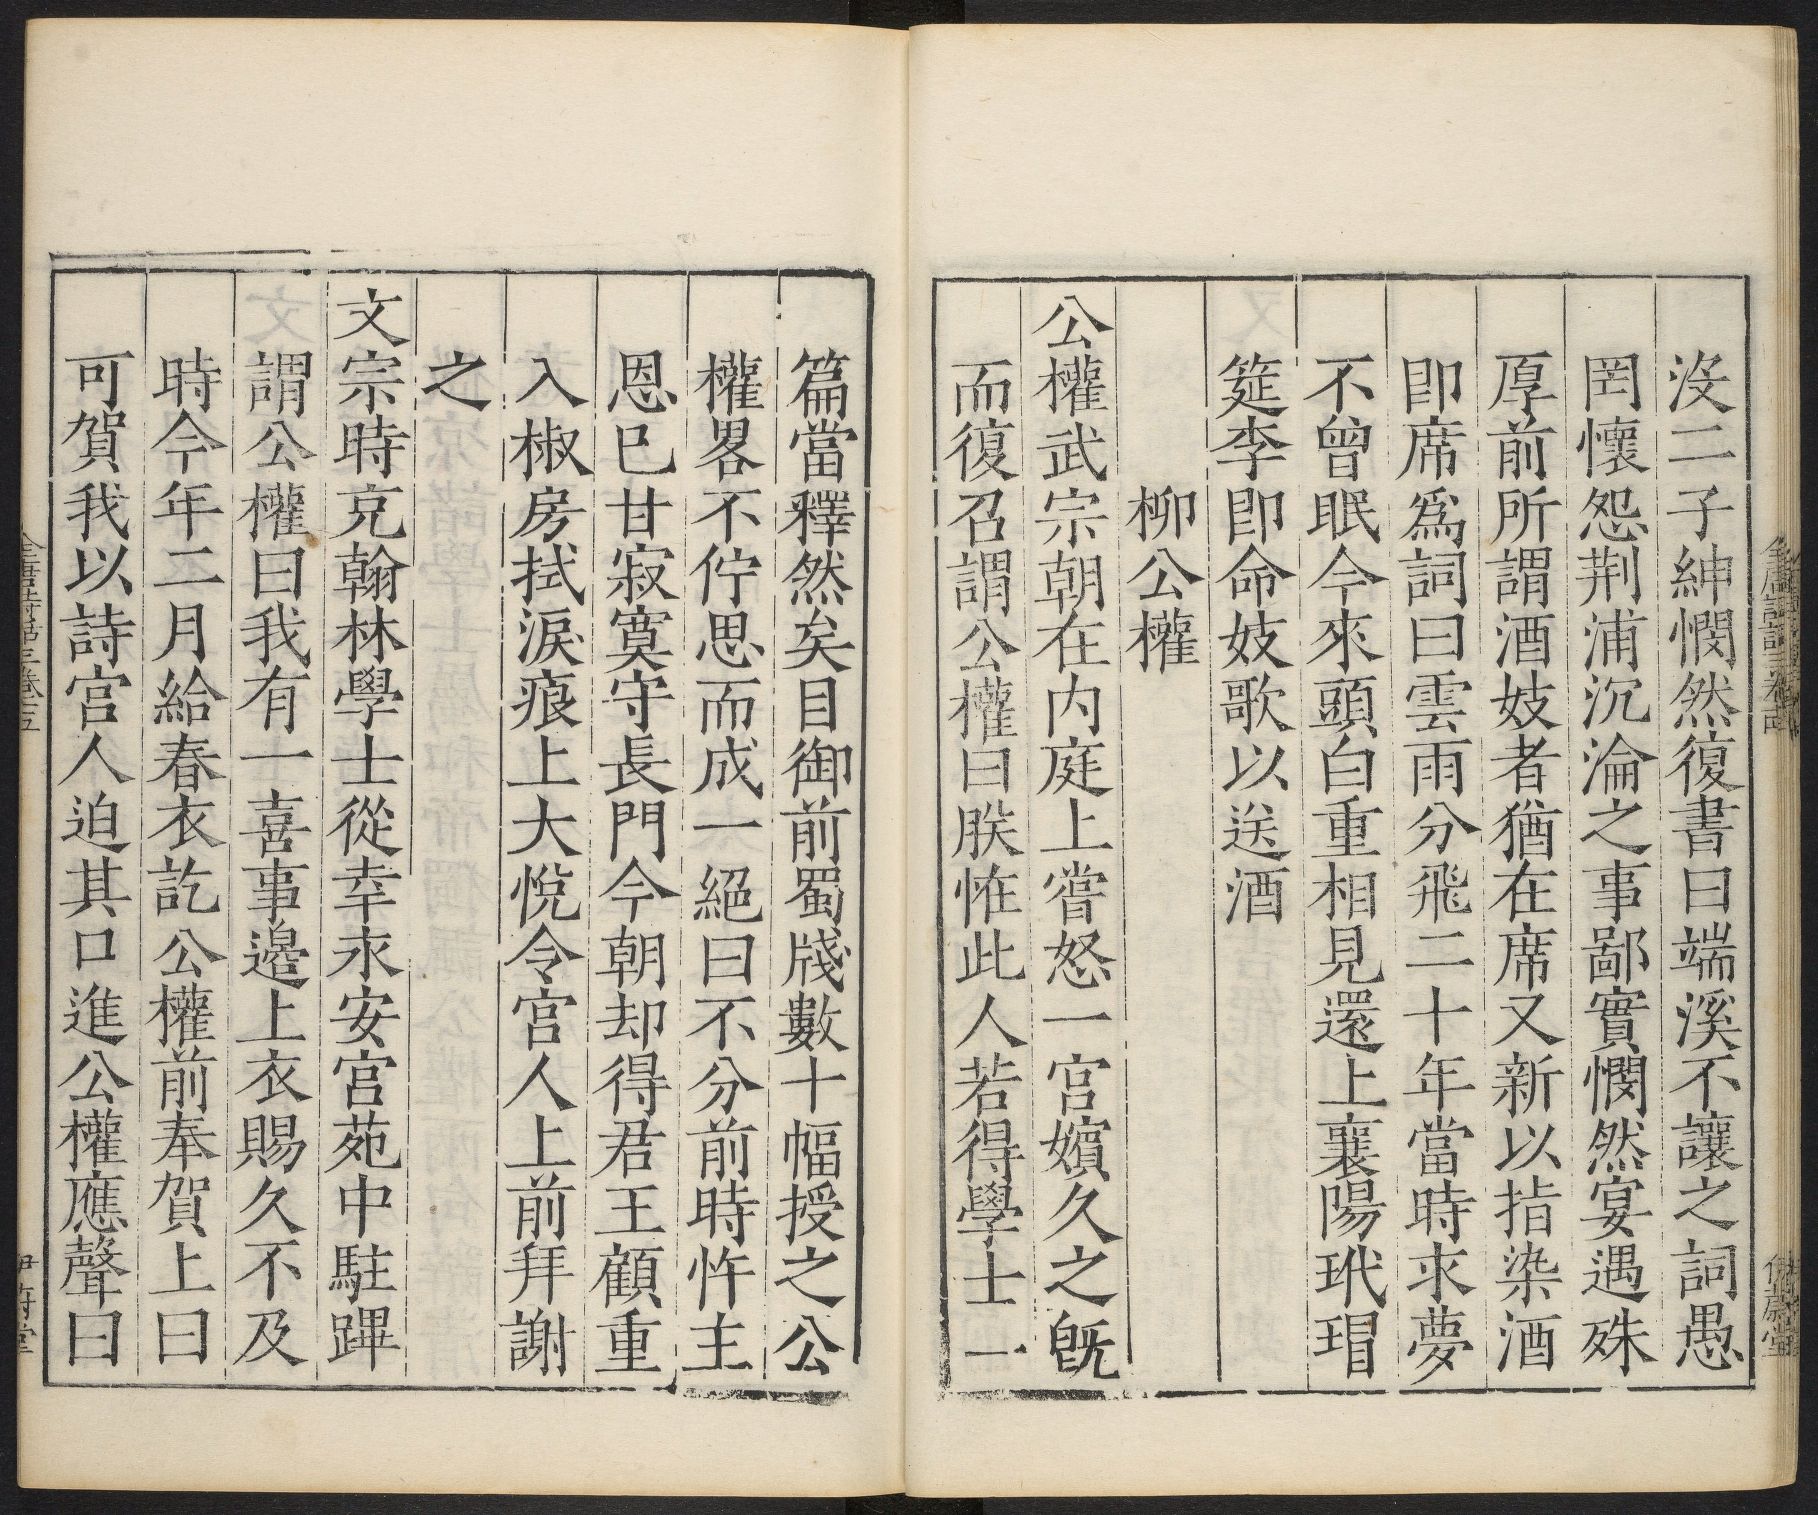 沒二子紳憫然復書曰端溪不讓之詞愚
罔懷怨荆浦沉淪之事鄙實憫然宴遇殊
厚前所謂酒妓者猶在席又新以指染酒
即席爲詞曰雲雨分飛二十年當時求夢
不曾眠今來頭白重相見還上襄陽玳瑁
筵李即命妓歌以送酒
柳公權
公權武宗朝在内庭上嘗怒一宮嬪久之旣
而復召謂公權曰朕恠此人若得學士一
篇當釋然矣目御前蜀牋數十幅授之公
權畧不佇思而成一絕曰不分前時忤主
恩已甘寂寞守長門今朝却得君王顧重
入椒房拭淚痕上大悅令宮人上前拜謝
之
文宗時充翰林學士從幸永安宮苑中駐蹕
謂公權曰我有一喜事邊上衣賜久不及
時今年二月給春衣訖公權前奉賀上曰
可賀我以詩宮人迫其口進公權應聲曰